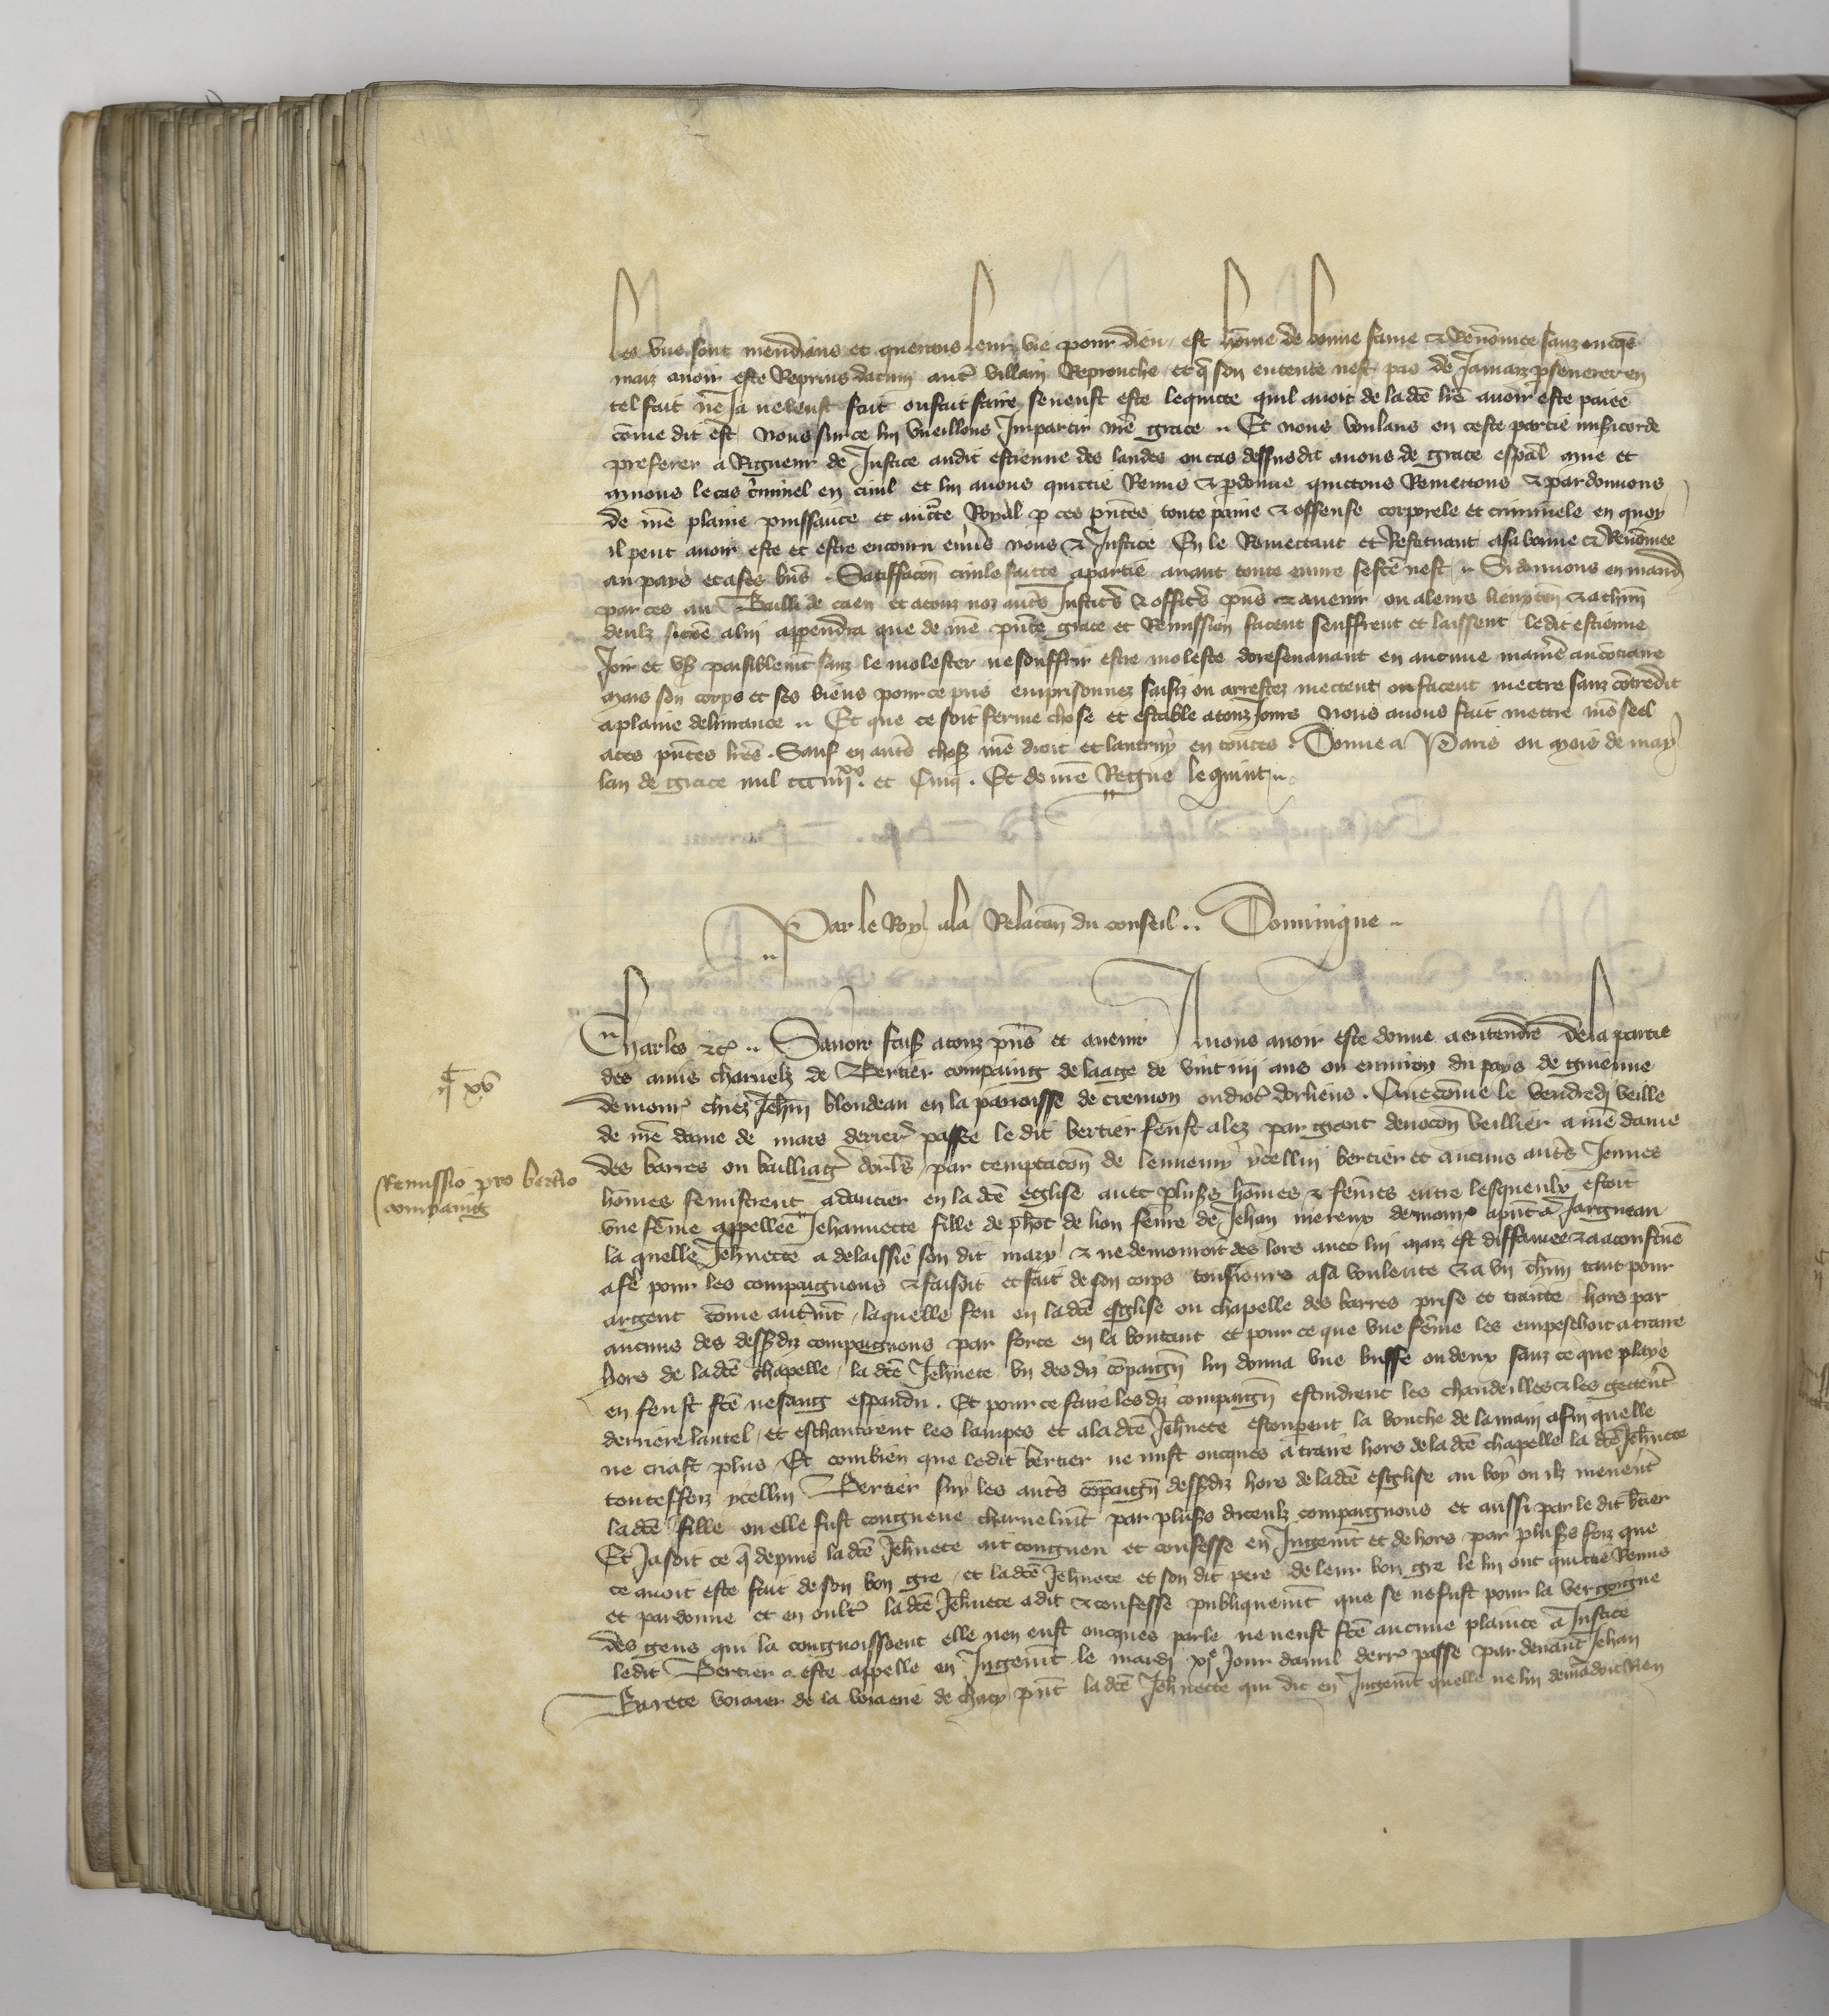 les une sont mendians et querens leur vie pour dieu est hōme de bonne fame & Renōmee sanz oncqs
maiz avoir este Reprins dacun autr̄ villain Reprouche et q̄ son entente nest pas de Jamaiz ꝑseverer en
tel fait ne Ja ne leust fait ou fait faire se neust este lequitte quil avoit de la dcē lrē avoir este paiee
cōme dit est Nous sur ce lui vueillons Impartir nrē grace .. Et nous voulans en ceste partie misicorde
preferer a Rigueur de Justice audit estienne des landes ou cas dessusdit avons de grace espāl mue et
muons le cas criminel en civil et lui avons quittie Remis & ꝑdonne quittons Remettons & pardonnons
de nrē plaine puissance et auctē Royal ꝑ ces pn̄tes toute paine & offense corporele et criminele en quoy
il peut avoir este et estre encouru envs nous & Justice En le Remettant et Restituant a sa bonne & Renōmee
au pays et a ses bns . Satiffacōn civile faitte a partie avant toute euvre se fcē nest .. Si donnons en mand
par ces au Bailli de caen et a touz noz autrs Justicrs & officrs pn̄s & avenir ou a leurs lieuxten & a chūn
deulz sicōe a lui appendra que de nrē pn̄te grace et Remission facent seuffrent et laissent ledit estienne
Joir et usr paisiblemt sanz le molester ne souffrir estre moleste doresenavant en aucune maniē au cōtraire
mais son corps et ses biens pour ce pris emprisonnez saisiz ou arrestez mettent ou facent mettre sanz cōtredit
a plaine delivrance .. Et que ce soit ferme chose et estable a touz Jours nous avons fait mettre nrē seel
a ces pn̄tes lrēs . Sauf en autrs chosz nrē droit et lautruy en toutes . Donne a Paris ou mois de may
lan de grace mil ccc iiijxx et Cinq . Et de nrē Regne le quint ..
Par le Roy a la Relacōn du conseil .. Dominique ..
Charles &c .. Savoir faisz a touz pn̄s et avenir A nous avoir este donne a entendre de la partie
des amis charnelz de Bertier compaing de laage de vint iiij ans ou environ du pays de guienne
demourr̄ chiez Jehn̄ blondeau en la parroisse de cremon ou diocr̄ dorliens . Que cōme le vendredi veille
de nrē dame de mars derrierr̄ passee le dit bertier feust alez par grant devocōn veillier a nrē dame
des barres ou bailliagr̄ dorlrs par temptacōn de lennemy ycellui bertier et aucuns autrs Jeunes
hōmes se mistrent a dancier en la dcē eglise avec plusrs hōmes & fēmes entre lesqueulx estoit
une fēme appellee Jehannette fille de de lion fēme de Jehan demourr̄ a pn̄t a Jargueau
la quelle Jehn̄ette a delaissie son dit mary & ne demouroit des lors avec lui maiz est diffamee & a acoustūe
a pour les compaignons & faisoit et fait de son corps tousiours a sa voulente & a un chūn tant pour
argent cōme autrmt, laquelle feu en la dcē esglise ou chapelle des barres prise et traitte hors par
aucuns des dessdiz compaignons par force en la boutant et pour ce que une fēme les empeschoit a traire
hors de la dcē chapelle la dcē Jehn̄ete un des diz cōpaign̄ lui donna une buffe ou deux sanz ce que playe
en feust fcē ne sang espandu . Et pour ce faire les diz compaign̄ estindrent les chandeilles & les gettert
derriere lautel, et estaintrent les lampes et a la dcē Jehn̄ete estouperent la bouche de la main afin quelle
ne criast plus, Et combien que ledit bertier ne mist oncques a traire hors de la dcē chapelle la dcē Jehn̄ete
touteffoiz ycellui Bertier suy les autrs cōpaign̄ dessdiz hors de la dcē esglise au boys ou ilz menert
la dcē fille ou elle fust congneue charnelmt par plusrs diceulz compaignons et aussi par le dit btier
Et Ja soit ce q̄ depuis la dcē Jehn̄ete ait congneu et confesse en Jugemt et dehors par plusrs foiz que
ce avoit este fait de son bon gre, et la dcē Jehn̄ete et son dit pere de leur bon gre le lui ont quittie Remis
et pardonne et en oultr̄ la dcē Jehn̄ete a dit & confesse publiquemt que se ne fust pour la vergoigne
des gens qui la congnoissoient elle nen eust oncques parle ne neust fcē aucune plainte a Justice
ledit Bertier a este appelle en Jugemt le mardi xje Jour davril derrr̄ passe par devant Jehan
Burete voiaier de la voierie de chacy pn̄t la dcē Jehn̄ette qui dit en Jugemt quelle ne lui demādoit Rien
ijc xv
Remissio pro bertro
compaing